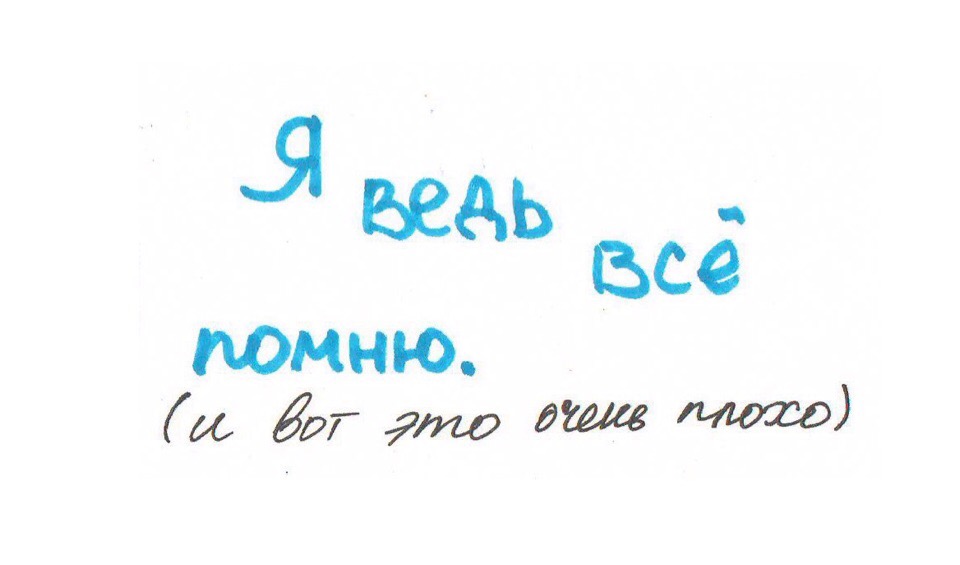 Я ведь всё
помню.
(и вот это очень плохо)